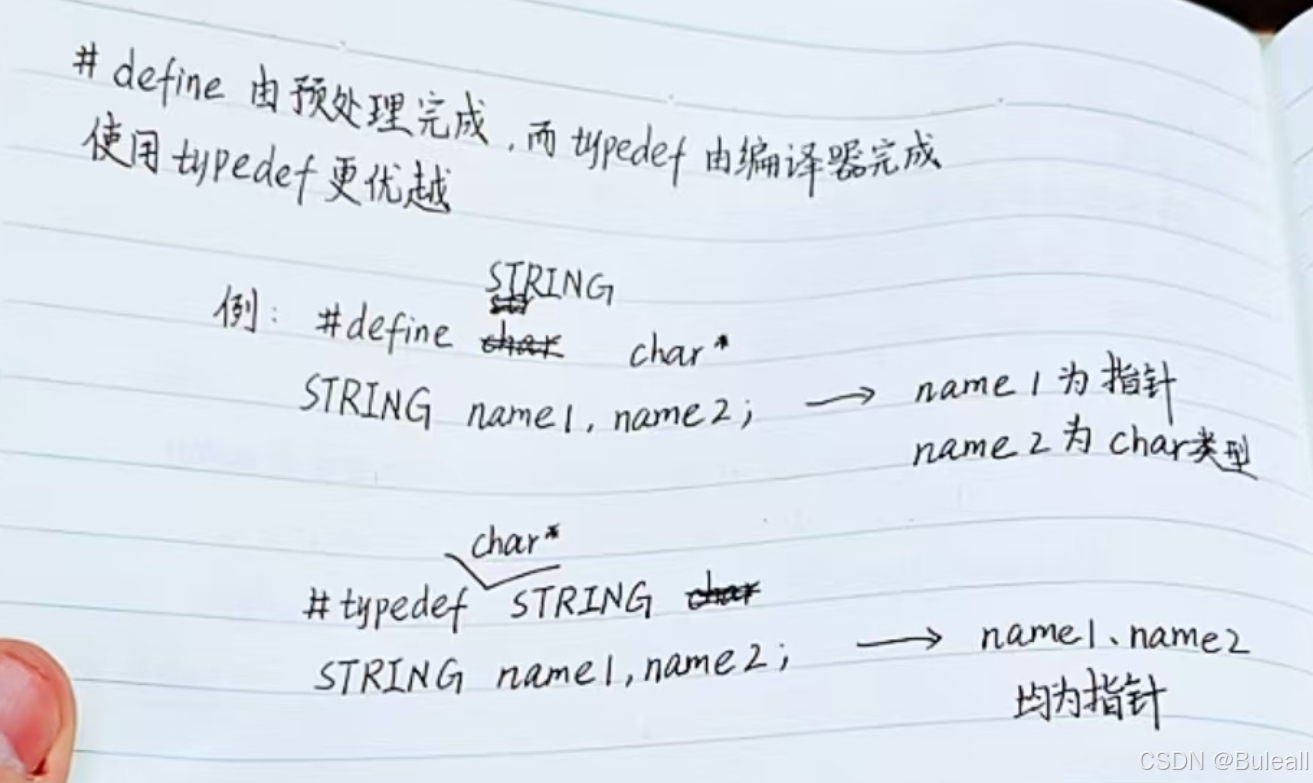 #define 由预处理完成，而typedef由编译器完成
使用typedef更优越
STRING
例：#define char char*
STRING name1, name2; → name1为指针
name2为char类型
char*
#typedef STRING char
STRING name1, name2; → name1、name2
均为指针
CSDN @Buleall